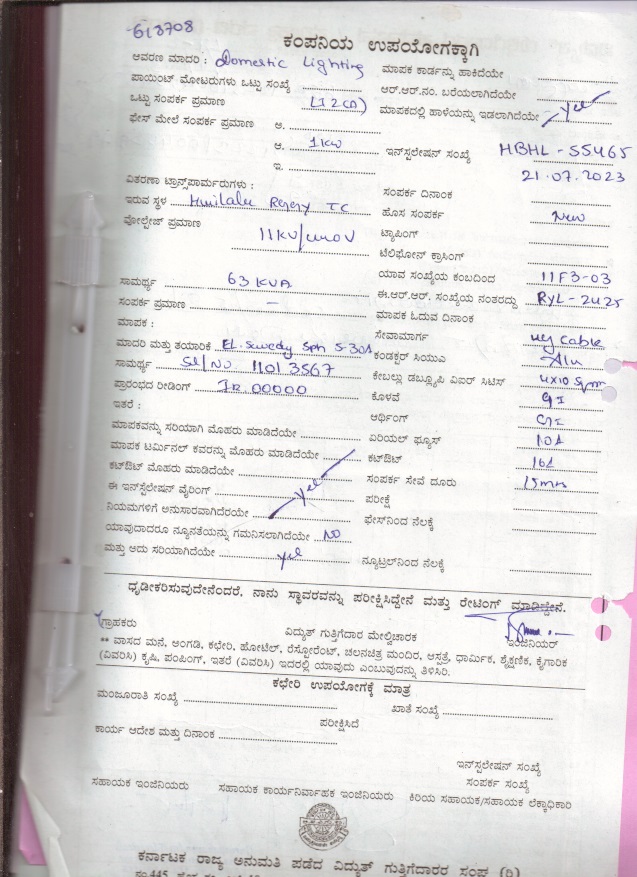 618708
ಕಂಪನಿಯ ಉಪಯೋಗಕ್ಕಾಗಿ
ಆವರಣ ಮಾದರಿ : Domestic Lighting ಮಾಪಕ ಕಾರ್ಡನ್ನು ಹಾಕಿದೆಯೇ
ಪಾಯಿಂಟ್ ಮೋಟರುಗಳು ಒಟ್ಟು ಸಂಖ್ಯೆ ಆರ್.ಆರ್.ನಂ. ಬರೆಯಲಾಗಿದೆಯೇ
ಒಟ್ಟು ಸಂಪರ್ಕ ಪ್ರಮಾಣ ಮಾಪಕದಲ್ಲಿ ಹಾಳೆಯನ್ನು ಇಡಲಾಗಿದೆಯೇ yes
ಫೇಸ್ ಮೇಲೆ ಸಂಪರ್ಕ ಪ್ರಮಾಣ ಅ.
ಆ. 1kw ಇನ್ಸ್ಟಲೇಷನ್ ಸಂಖ್ಯೆ HBHL - 55465
ಇ. 21.07.2023
ವಿತರಣಾ ಟ್ರಾನ್ಸ್‌ಪಾರ್ಮರುಗಳು : ಸಂಪರ್ಕ ದಿನಾಂಕ
ಇರುವ ಸ್ಥಳ TC ಹೊಸ ಸಂಪರ್ಕ New
ವೋಲ್ಟೇಜ್ ಪ್ರಮಾಣ 11KV/ ಟ್ಯಾಪಿಂಗ್
ಟೆಲಿಫೋನ್ ಕ್ರಾಸಿಂಗ್
ಸಾಮರ್ಥ್ಯ 63 KVA ಯಾವ ಸಂಖ್ಯೆಯ ಕಂಬದಿಂದ 11F3-03
ಸಂಪರ್ಕ ಪ್ರಮಾಣ — ಈ.ಆರ್.ಆರ್. ಸಂಖ್ಯೆಯ ನಂತರದ್ದು RYL - 2425
ಮಾಪಕ : ಮಾಪಕ ಓದುವ ದಿನಾಂಕ
ಮಾದರಿ ಮತ್ತು ತಯಾರಿಕೆ Sph 5-30A ಸೇವಾಮಾರ್ಗ ug cable
ಸಾಮರ್ಥ್ಯ Sl/No. 11013567 ಕಂಡಕ್ಟರ್ ಸಿಯುಎ Alu
ಪ್ರಾರಂಭದ ರೀಡಿಂಗ್ IR. 00000 ಕೇಬಲ್ಲು ಡಬ್ಲ್ಯೂಪಿ ವಿಐರ್ ಸಿಟಿಸ್ 4x10 sqm
ಇತರೆ : ಕೊಳವೆ GI
ಆರ್ಥಿಂಗ್ GI
ಮಾಪಕವನ್ನು ಸರಿಯಾಗಿ ಮೊಹರು ಮಾಡಿದೆಯೇ ಏರಿಯಲ್ ಫ್ಯೂಸ್ 10A
ಮಾಪಕ ಟರ್ಮಿನಲ್ ಕವರನ್ನು ಮೊಹರು ಮಾಡಿದೆಯೇ ಕಟ್‌ಔಟ್ 16A
ಕಟ್‌ಔಟ್ ಮೊಹರು ಮಾಡಿದೆಯೇ yes ಸಂಪರ್ಕ ಸೇವೆ ದೂರು 15mrs
ಈ ಇನ್ಸ್ಟಲೇಷನ್ ವೈರಿಂಗ್ ಪರೀಕ್ಷೆ
ನಿಯಮಗಳಿಗೆ ಅನುಸಾರವಾಗಿದೆರಯೇ ಫೇಸ್‌ನಿಂದ ನೆಲಕ್ಕೆ
ಯಾವುದಾದರೂ ನ್ಯೂನತೆಯನ್ನು ಗಮನಿಸಲಾಗಿದೆಯೇ NO
ಮತ್ತು ಅದು ಸರಿಯಾಗಿದೆಯೇ yes ನ್ಯೂಟ್ರಲ್‌ನಿಂದ ನೆಲಕ್ಕೆ
ಧೃಡೀಕರಿಸುವುದೇನೆಂದರೆ, ನಾನು ಸ್ಥಾವರವನ್ನು ಪರೀಕ್ಷಿಸಿದ್ದೇನೆ ಮತ್ತು ರೇಟಿಂಗ್ ಮಾಡಿದ್ದೇನೆ.
ಗ್ರಾಹಕರು ವಿದ್ಯುತ್ ಗುತ್ತಿಗೆದಾರ ಮೇಲ್ವಿಚಾರಕ ಇಂಜಿನಿಯರ್
** ವಾಸದ ಮನೆ, ಅಂಗಡಿ, ಕಛೇರಿ, ಹೋಟೆಲ್, ರೆಸ್ಟೋರೆಂಟ್, ಚಲನಚಿತ್ರ ಮಂದಿರ, ಆಸ್ಪತ್ರೆ, ಧಾರ್ಮಿಕ, ಶೈಕ್ಷಣಿಕ, ಕೈಗಾರಿಕ
(ವಿವರಿಸಿ) ಕೃಷಿ, ಪಂಪಿಂಗ್, ಇತರೆ (ವಿವರಿಸಿ) ಇದರಲ್ಲಿ ಯಾವುದು ಎಂಬುವುದನ್ನು ತಿಳಿಸಿರಿ.
ಕಛೇರಿ ಉಪಯೋಗಕ್ಕೆ ಮಾತ್ರ
ಮಂಜೂರಾತಿ ಸಂಖ್ಯೆ ಖಾತೆ ಸಂಖ್ಯೆ
ಪರೀಕ್ಷಿಸಿದೆ
ಕಾರ್ಯ ಆದೇಶ ಮತ್ತು ದಿನಾಂಕ
ಇನ್ಸ್ಟಲೇಷನ್ ಸಂಖ್ಯೆ
ಸಂಪರ್ಕ ಸಂಖ್ಯೆ
ಸಹಾಯಕ ಇಂಜಿನಿಯರು ಸಹಾಯಕ ಕಾರ್ಯನಿರ್ವಾಹಕ ಇಂಜಿನಿಯರು ಕಿರಿಯ ಸಹಾಯಕ/ಸಹಾಯಕ ಲೆಕ್ಕಾಧಿಕಾರಿ
ಕರ್ನಾಟಕ ರಾಜ್ಯ ಅನುಮತಿ ಪಡೆದ ವಿದ್ಯುತ್ ಗುತ್ತಿಗೆದಾರರ ಸಂಘ (ರಿ)